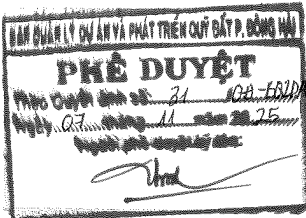 BAN QUẢN LÝ DỰ ÁN VÀ PHÁT TRIỂN QUỸ ĐẤT P. ĐÔNG HẢI
PHÊ DUYỆT
Theo Quyết định số: 21 /QĐ-BQLDA
Ngày 07 tháng 11 năm 2025
Người phê duyệt ký tên: